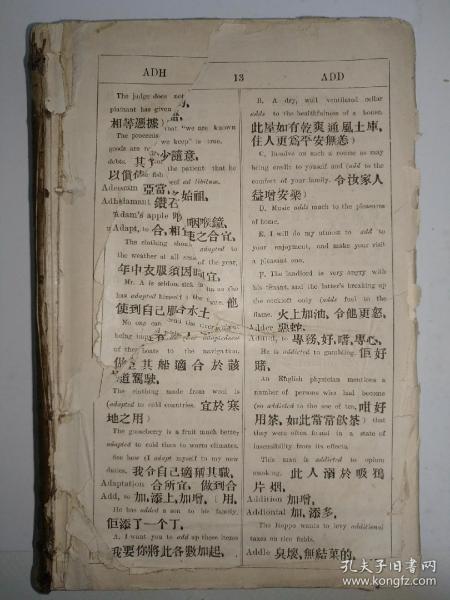 ADH 13 ADD
The judge does not
plainant has given
相等憑據)
that "we are known
The proceeds
we keep" is true.
goods are
debts.
少隨意,
the patient that he
以償
fish
ad libitum.
Adessam 亞當
始祖,
Adhadamant 鑽石
Adam's apple
咽喉鐘,
Adapt, to 合, 相宜,
使之合宜,
The clothing should
adapted to
the weather at all
of the year,
年中衣服須因時
宜,
Mr. A is seldom sick
has adapted himself
他
使到自己服合水土
No one can
being
adaptedness
of they boats to the navigation.
其船適合於該
道駕駛,
The clothing made from wool is
(adapted to cold countries. 宜於寒
地之用)
The gooseberry is a fruit much better,
adapted to cold than to warm climates.
See how (I adapt myself to my new
duties, 我令自己適稱其職,
Adaptation 合所宜, 做到合
Add, to 加, 添上, 加增, 〔用,
He has added a son to his family,
佢添了一个丁,
A. I want you to add up these items
我要你將此各數加起,
B. A dry, well ventilated cellar
adds to the healthfulness of a house.
此屋如有乾爽通風土庫,
住人更爲平安無恙)
C. Insolve on such a course as may
bring credit to youself and (add to the
comfort of your family. 令汝家人
益增安樂)
D. Music adds much to the pleasures
of home.
E. I will do my utmost to add to
your enjoyment, and make your visit
a pleasant one.
F. The landlord is very angry with
his tenant, and the latter's breaking up
the cookloft only (adds fuel to the
flame. 火上加油, 令他更怒,
Adder 惡蛇,
Addict, to 專務, 好, 嗜, 專心,
He is addicted to gambling. 佢好
賭,
An English physician mentions a
number of persons who had become
(so addicted to the use of tea, 咁好
用茶, 如此常常飲茶) that
they were often found in a state of
insensibility from its effects.
This man is addicted to opium
smoking. 此人溺於吸鴉
片烟,
Addition 加增,
Addiontal 加, 添多,
The Hoppo wants to levy additional
taxes on rice fields.
Addle 臭壞, 無結菓的,
孔夫子旧书网
www.kongfz.com